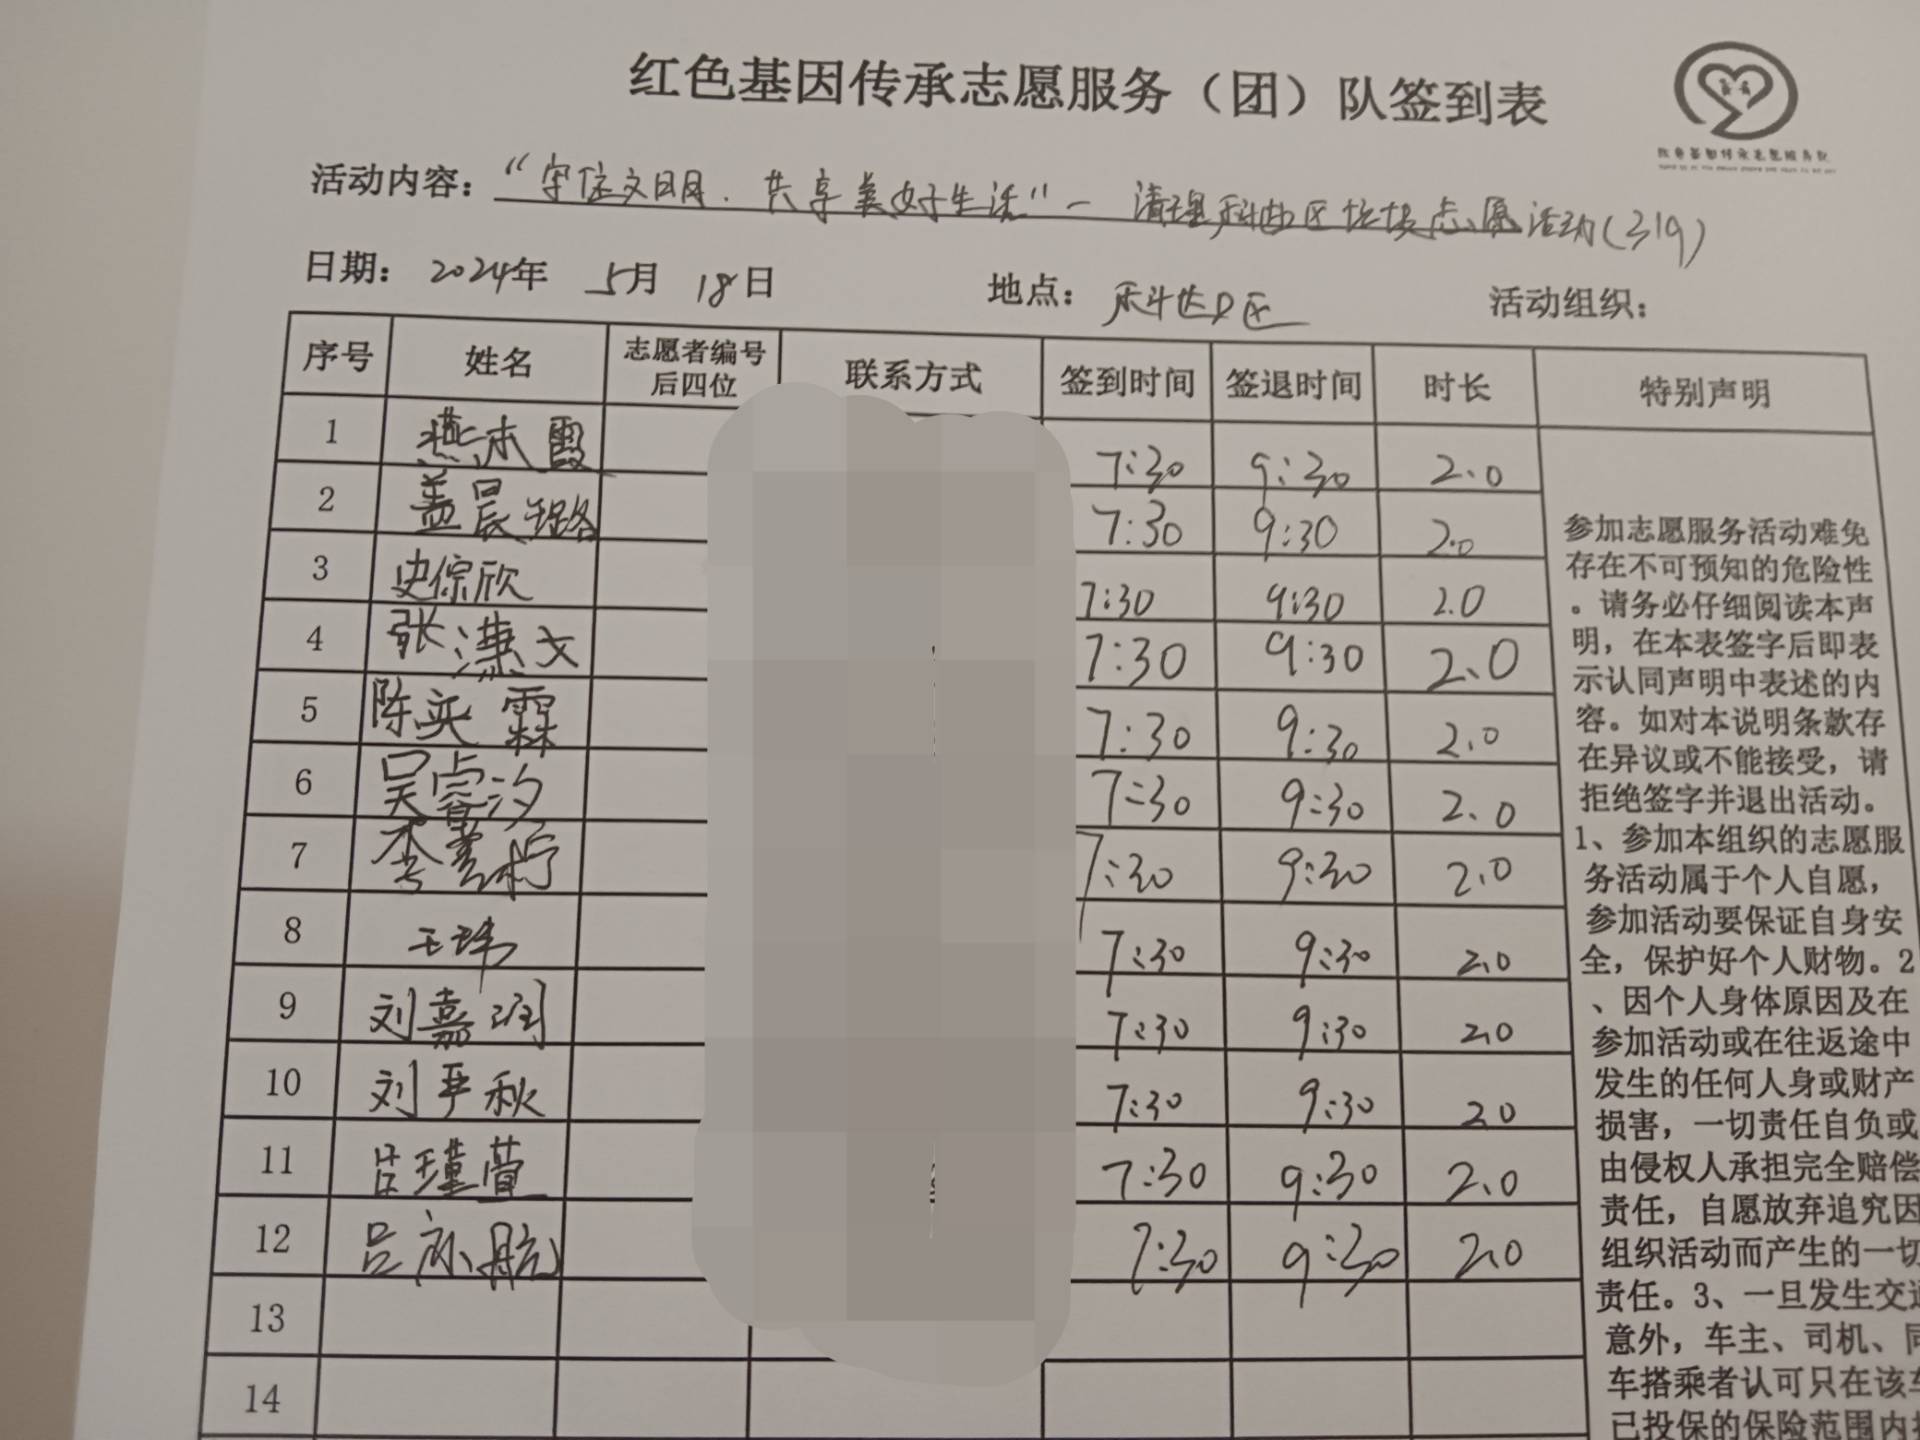 红色基因传承志愿服务（团）队签到表
活动内容："守信文明.共享美好生活"— 清理科达区垃圾志愿活动(319)
日期：2024年 5月 18日 地点：科达D区 活动组织：
序号 姓名 志愿者编号后四位 联系方式 签到时间 签退时间 时长 特别声明
1 燕木霞 7:30 9:30 2.0
2 盖晨璐 7:30 9:30 2.0
3 史倧欣 7:30 9:30 2.0
4 张潇文 7:30 9:30 2.0
5 陈奕霖 7:30 9:30 2.0
6 吴睿汐 7:30 9:30 2.0
7 7:30 9:30 2.0
8 王玮 7:30 9:30 2.0
9 刘嘉润 7:30 9:30 2.0
10 刘秋 7:30 9:30 2.0
11 吕瑾萱 7:30 9:30 2.0
12 吕航 7:30 9:30 2.0
13
14
参加志愿服务活动难免
存在不可预知的危险性
。请务必仔细阅读本声
明，在本表签字后即表
示认同声明中表述的内
容。如对本说明条款存
在异议或不能接受，请
拒绝签字并退出活动。
1、参加本组织的志愿服
务活动属于个人自愿，
参加活动要保证自身安
全，保护好个人财物。2
、因个人身体原因及在
参加活动或在往返途中
发生的任何人身或财产
损害，一切责任自负或
由侵权人承担完全赔偿
责任，自愿放弃追究因
组织活动而产生的一切
责任。3、一旦发生交通
意外，车主、司机、同
车搭乘者认可只在该车
已投保的保险范围内